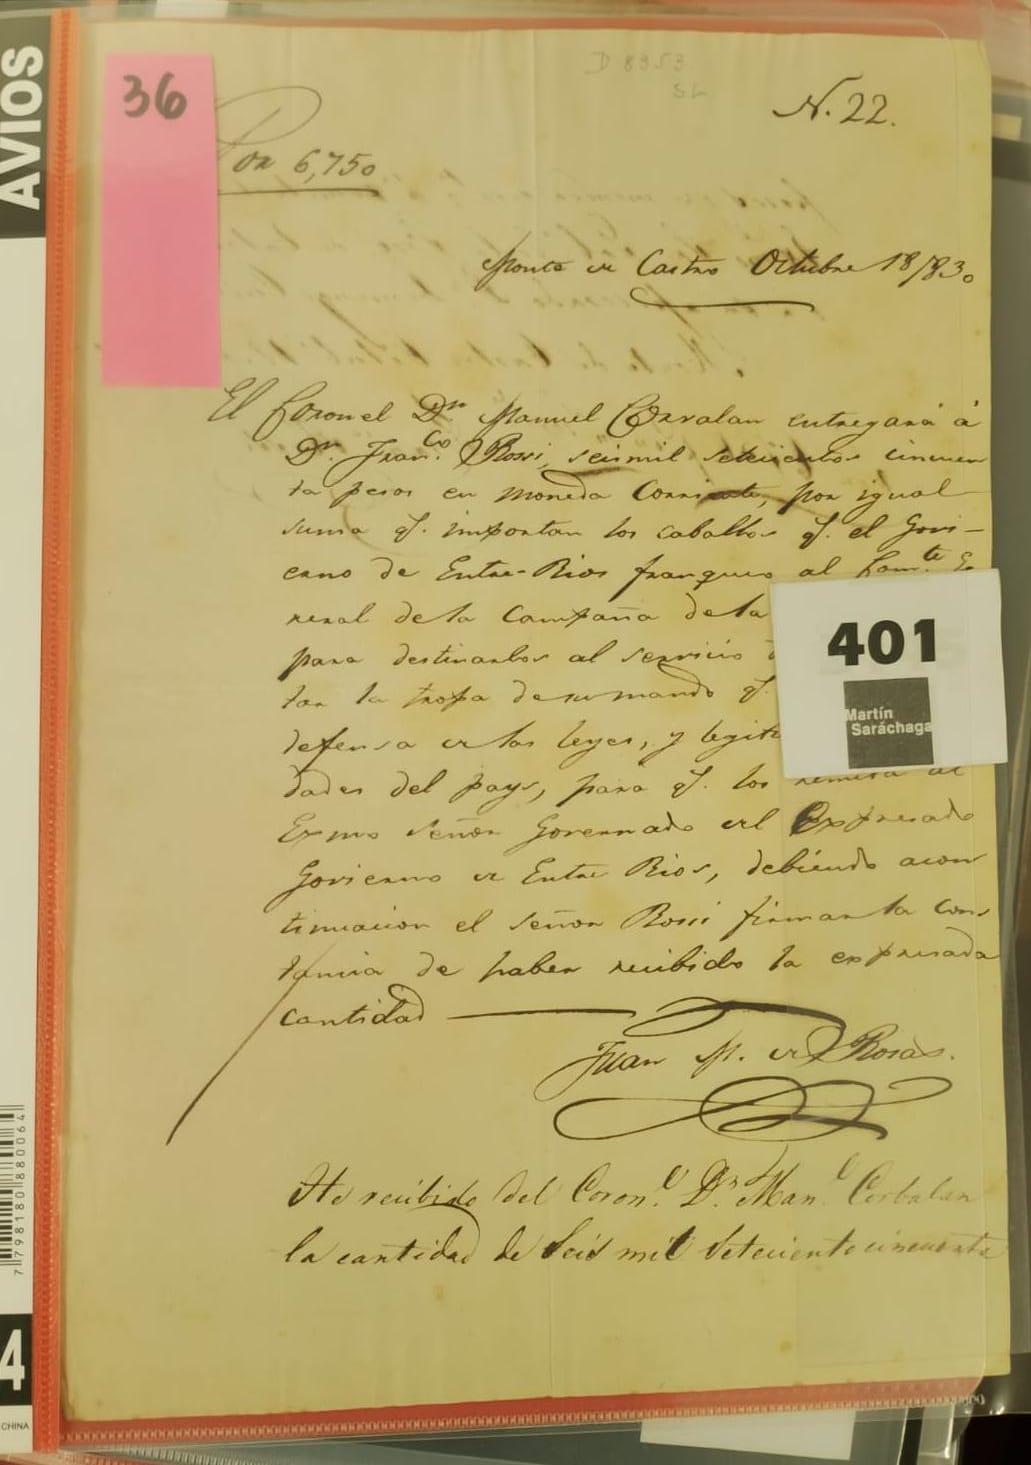 AVIOS
36
D 8953
SL
N. 22.
Por 6,750
Monte de Castro Octubre 18/830
El Coronel Dn Manuel Corvalan entregará á
Dn Franco Rossi, seis mil setecientos cincuen
ta pesos en moneda corriente, por igual
suma q. importan los caballos q. el Govi-
erno de Entre-Rios franqueo al Comte Ge
neral de la Campaña de la
para destinarlos al servicio
tar la tropa de su mando q.
defensa de las leyes, y legiti
dades del pays, para q. los remita al
Exmo Señor Governado del Expresado
Govierno de Entre Rios, debiendo acon
tinuacion el Señor Rossi firmar la cons
tancia de haber recibido la expresada
cantidad
Juan M. de Rosas.
He recibido del Coronl. Dn. Manl. Corbalan
la cantidad de Seis mil Setecientocincuenta
401
Martín
Saráchaga
7 798180 880064
4
CHINA